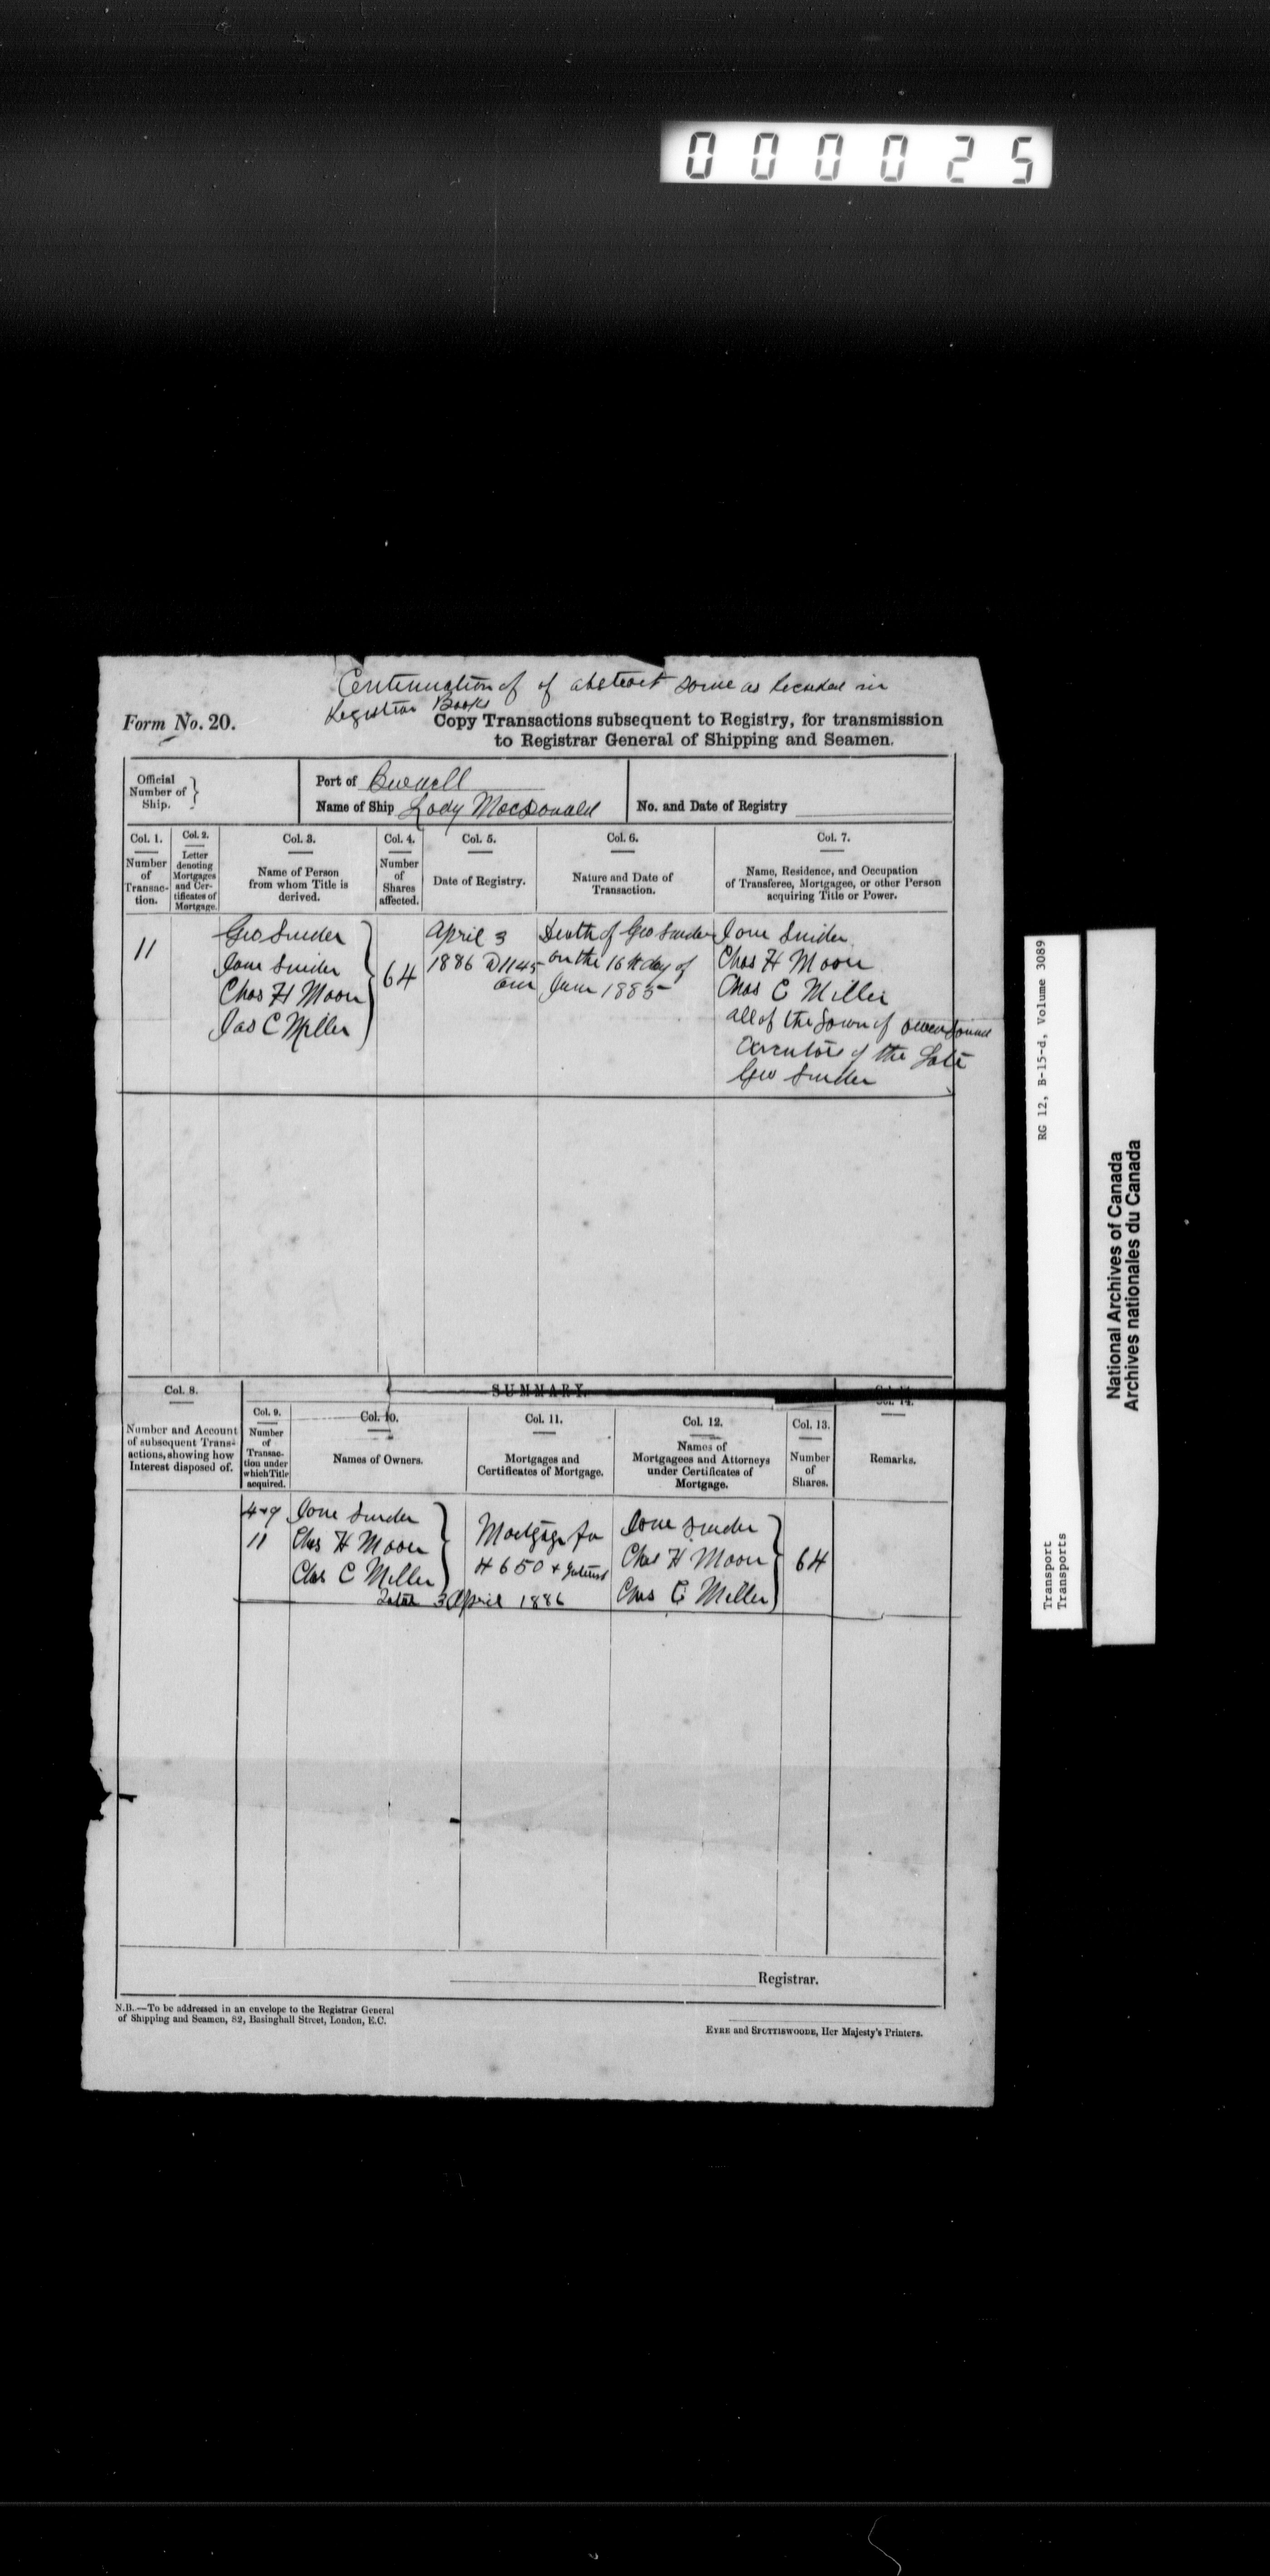 000025
Continuation of of abstract same as Recorded in
Registrar Books
Form No. 20.
Copy Transactions subsequent to Registry, for transmission
to Registrar General of Shipping and Seamen.
Official
Number of
Ship. }
Port of
Name of Ship Lady MacDonald
No. and Date of Registry
Col. 1.
Number
of
Transac-
tion.
Col. 2.
Letter
denoting
Mortgages
and Cer-
tificates of
Mortgage.
Col. 3.
Name of Person
from whom Title is
derived.
Col. 4.
Number
of
Shares
affected.
Col. 5.
Date of Registry.
Col. 6.
Nature and Date of
Transaction.
Col. 7.
Name, Residence, and Occupation
of Transferee, Mortgagee, or other Person
acquiring Title or Power.
11
Geo Snider
Jane Snider
Chas H Moon
Jas C Miller
64
April 3
1886 @ 1145
am
Death of Geo Snider
on the 16th day of
June 1885
Jane Snider
Chas H Moon
Chas C Miller
all of the Town of Owen Sound
Executors of the Late
Geo Snider
SUMMARY.
Col. 8.
Number and Account
of subsequent Trans-
actions, showing how
Interest disposed of.
Col. 9.
Number
of
Transac-
tion under
which Title
acquired.
Col. 10.
Names of Owners.
Col. 11.
Mortgages and
Certificates of Mortgage.
Col. 12.
Names of
Mortgagees and Attorneys
under Certificates of
Mortgage.
Col. 13.
Number
of
Shares.
Col. 14.
Remarks.
4+9
11
Jane Snider
Chas H Moon
Chas C Miller
Mortgage for
4650 + Interest
Jane Snider
Chas H Moon
Chas C Miller
64
3 April 1886
Registrar.
N.B.—To be addressed in an envelope to the Registrar General
of Shipping and Seamen, 82, Basinghall Street, London, E.C.
EYRE and SPOTTISWOODE, Her Majesty's Printers.
RG 12, B-15-d, Volume 3089
Transport
Transports
National Archives of Canada
Archives nationales du Canada